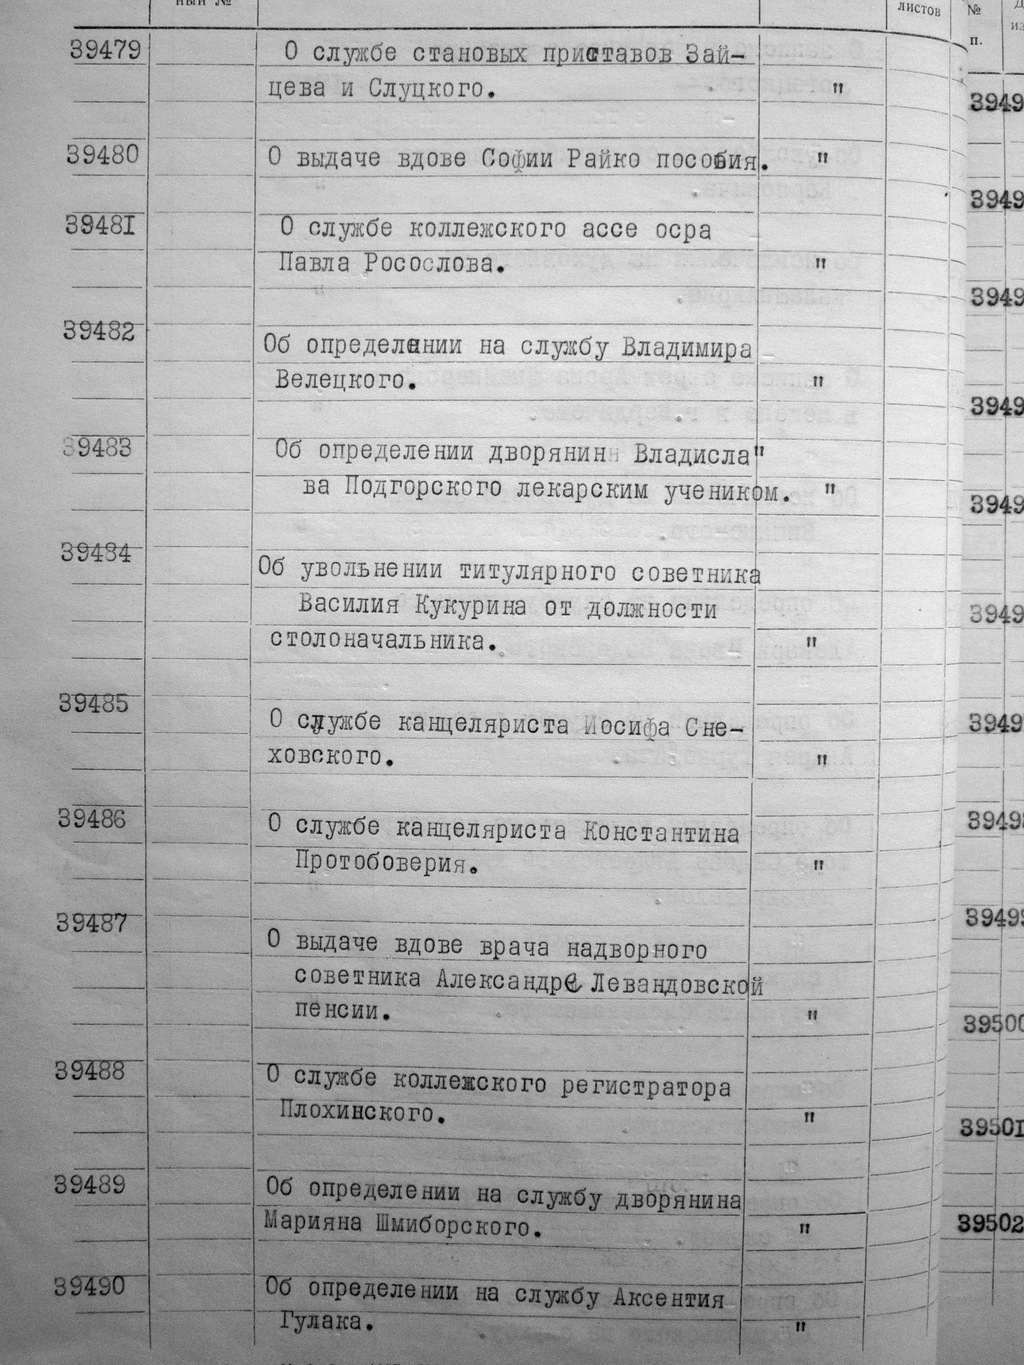 ный №
листов
№
п.
39479 О службе становых приставов Зай-
цева и Слуцкого. "
39480 О выдаче вдове Софии Райко пособия. "
39481 О службе коллежского ассе осра
Павла Рососслова. "
39482 Об определении на службу Владимира
Велецкого. "
39483 Об определении дворянин Владисла"
ва Подгорского лекарским учеником. "
39484 Об увольнении титулярного советника
Василия Кукурина от должности
столоначальника. "
39485 О службе канцеляриста Иосифа Сне-
ховского. "
39486 О службе канцеляриста Константина
Протобоверия. "
39487 О выдаче вдове врача надворного
советника Александре Левандовской
пенсии. "
39488 О службе коллежского регистратора
Плохинского. "
39489 Об определении на службу дворянина
Марияна Шмиборского. "
39490 Об определении на службу Аксентия
Гулака. "
3949
3949
3949
3949
3949
3949
3949
3949
3949
39500
39501
39502